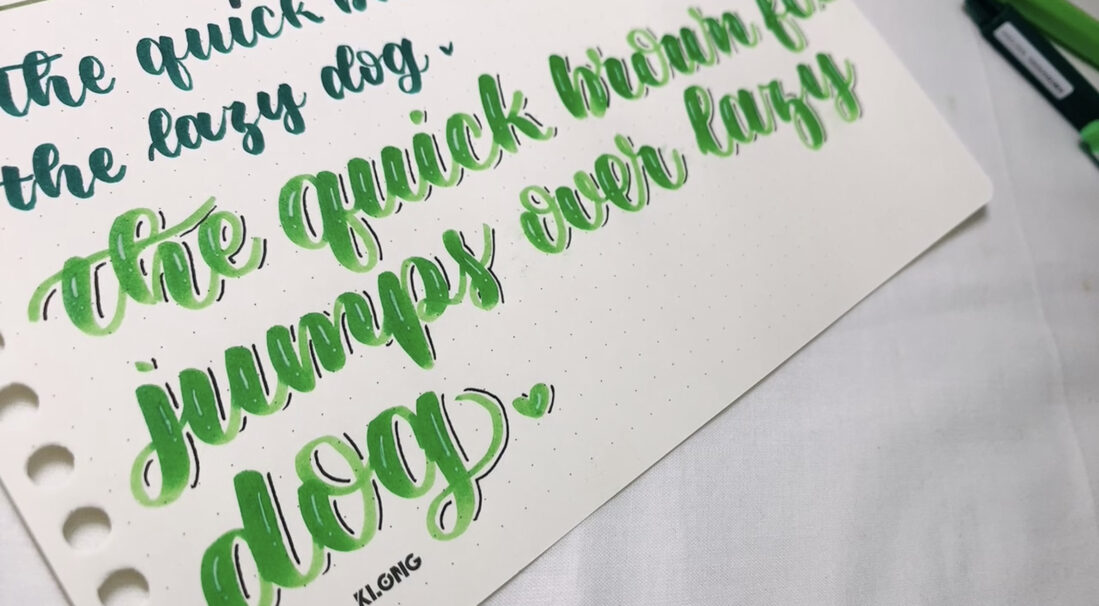 the quick
the lazy dog.
the
the quick brown fo
jumps over lazy
dog
KLONG